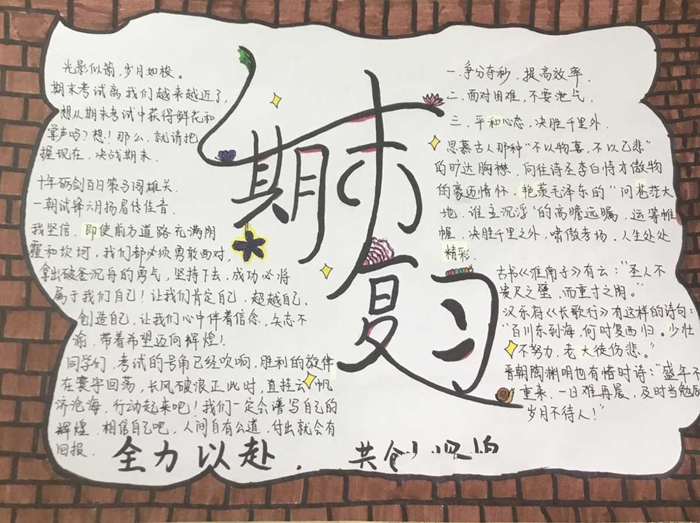 光影似箭,岁月如梭。
期末考试离我们越来越近了,
想从期末考试中获得鲜花和
掌声吗?想!那么,就请把
握现在,决战期末
十年砺剑百日策马闯雄关
一朝试锋六月扬眉传佳音
我坚信,即使前方道路充满阴
霾和坎坷,我们都必须勇敢面对,
拿出破釜沉舟的勇气,坚持下去,成功必将
属于我们自己!让我们肯定自己,超越自己,
创造自己,让我们心中伴着信念,矢志不
渝,带着希望迈向辉煌!
同学们,考试的号角已经吹响,胜利的歌伴
在寰宇回荡,长风破浪正此时,直挂云帆
济沧海,行动起来吧!我们一定会谱写自己的
辉煌,相信自己吧,人间自有公道,付出就会有
回报。
期末
复习
一.争分夺秒,提高效率.
二.面对困难,不要泄气.
三.平和心态,决胜千里外.
思慕古人那种"不以物喜,不以己悲"
的旷达胸襟,向往诗圣李白恃才傲物
的豪迈情怀.艳羡毛泽东的"问苍茫大
地,谁主沉浮"的高瞻远瞩,运筹帷
幄,决胜千里之外,啸傲考场,人生处处
精彩.
古书《淮南子》有云:"圣人不
贵尺之璧,而重寸之阴。"
汉乐府《长歌行》有这样的诗句:
"百川东到海,何时复西归。少壮
不努力,老大徒伤悲。"
晋朝陶渊明也有惜时诗:"盛年不
重来,一日难再晨,及时当勉励
岁月不待人!"
全力以赴.共创